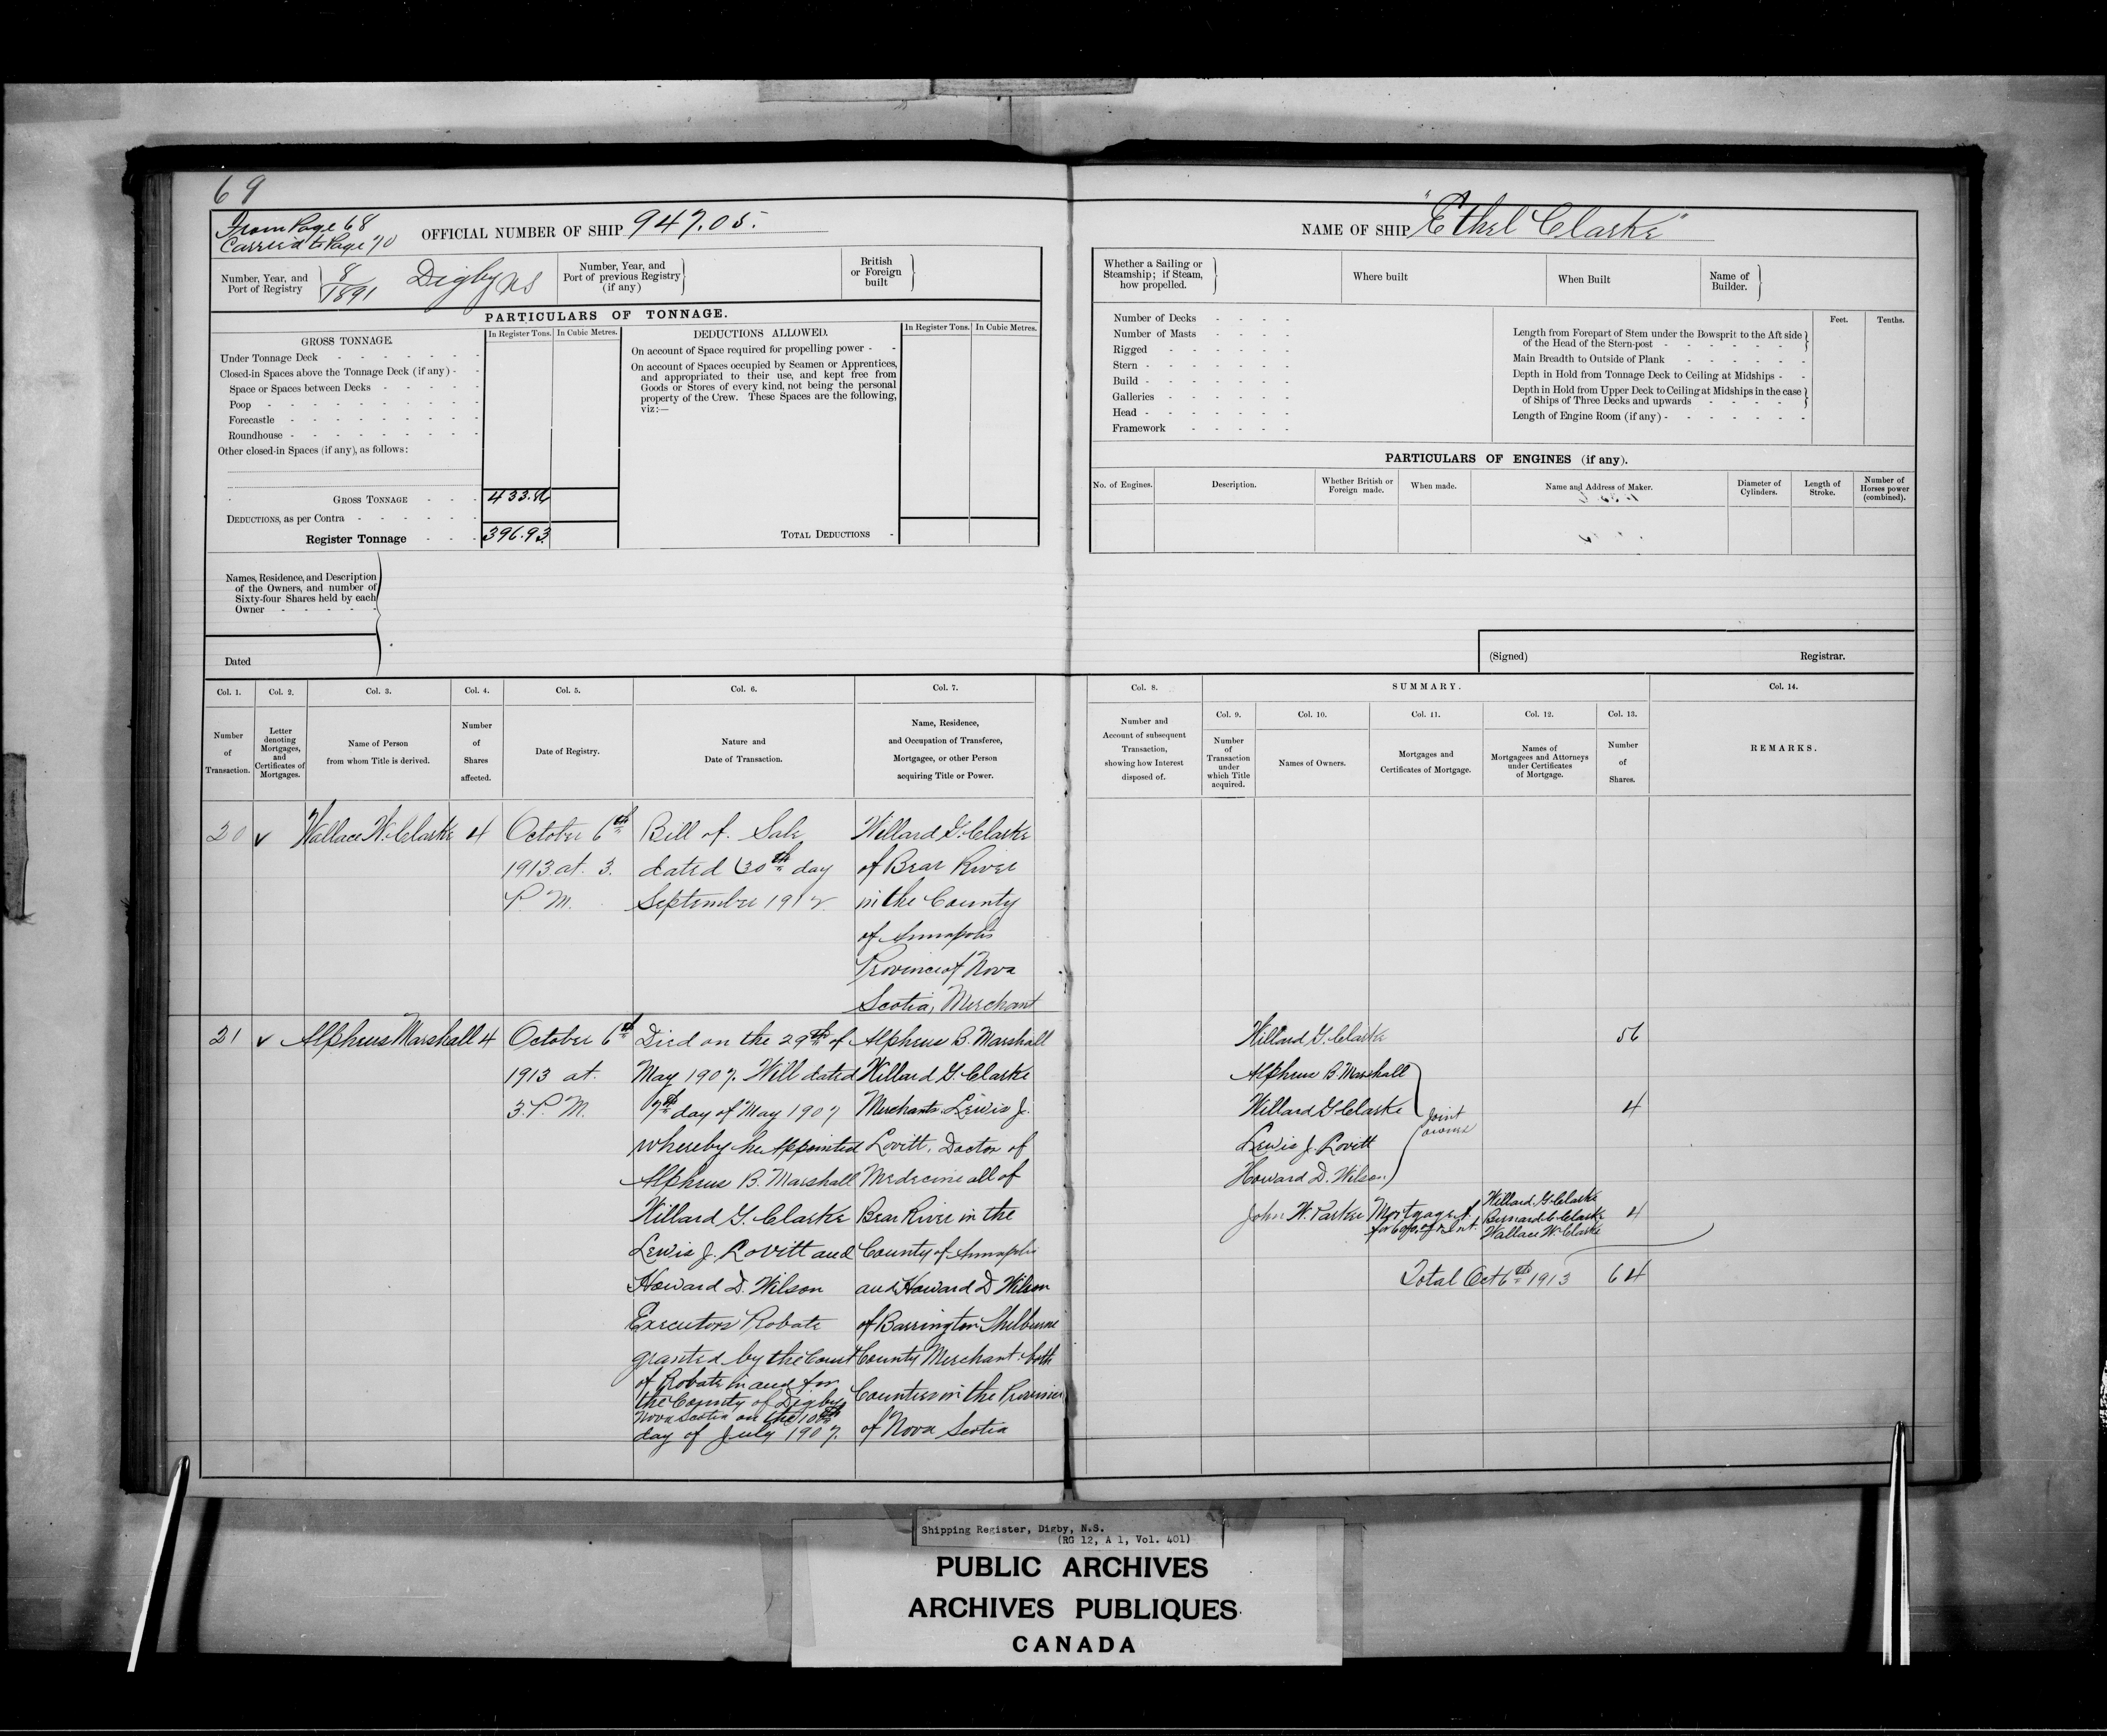 69
From Page 68
Carried to Page 70
OFFICIAL NUMBER OF SHIP 947.05.
Number, Year, and
Port of Registry
8
1891
Digby NS
Number, Year, and
Port of previous Registry
(if any)
British
or Foreign
built
PARTICULARS OF TONNAGE.
GROSS TONNAGE.
In Register Tons. In Cubic Metres.
DEDUCTIONS ALLOWED.
In Register Tons. In Cubic Metres.
Under Tonnage Deck
Closed-in Spaces above the Tonnage Deck (if any) -
Space or Spaces between Decks
Poop
Forecastle
Roundhouse
Other closed-in Spaces (if any), as follows:
On account of Space required for propelling power -
On account of Spaces occupied by Seamen or Apprentices,
and appropriated to their use, and kept free from
Goods or Stores of every kind, not being the personal
property of the Crew. These Spaces are the following,
viz:—
GROSS TONNAGE
DEDUCTIONS, as per Contra
Register Tonnage 396.93
TOTAL DEDUCTIONS
Names, Residence, and Description
of the Owners, and number of
Sixty-four Shares held by each
Owner
Dated
NAME OF SHIP "Ethel Clarke"
Whether a Sailing or
Steamship; if Steam,
how propelled.
Where built
When Built
Name of
Builder.
Number of Decks
Number of Masts
Rigged
Stern
Build
Galleries
Head
Framework
Feet. Tenths.
Length from Forepart of Stem under the Bowsprit to the Aft side
of the Head of the Stern-post
Main Breadth to Outside of Plank
Depth in Hold from Tonnage Deck to Ceiling at Midships
Depth in Hold from Upper Deck to Ceiling at Midships in the case
of Ships of Three Decks and upwards
Length of Engine Room (if any)
PARTICULARS OF ENGINES (if any).
No. of Engines.
Description.
Whether British or
Foreign made.
When made.
Name and Address of Maker.
Diameter of
Cylinders.
Length of
Stroke.
Number of
Horses power
(combined).
(Signed) Registrar.
Col. 1.
Number
of
Transaction.
Col. 2.
Letter
denoting
Mortgages,
and
Certificates of
Mortgages.
Col. 3.
Name of Person
from whom Title is derived.
Col. 4.
Number
of
Shares
affected.
Col. 5.
Date of Registry.
Col. 6.
Nature and
Date of Transaction.
Col. 7.
Name, Residence,
and Occupation of Transferee,
Mortgagee, or other Person
acquiring Title or Power.
Col. 8.
Number and
Account of subsequent
Transaction,
showing how Interest
disposed of.
SUMMARY.
Col. 9.
Number
of
Transaction
under
which Title
acquired.
Col. 10.
Names of Owners.
Col. 11.
Mortgages and
Certificates of Mortgage.
Col. 12.
Names of
Mortgagees and Attorneys
under Certificates
of Mortgage.
Col. 13.
Number
of
Shares.
Col. 14.
REMARKS.
20
Wallace W. Clarke
4
October 6th
1913 at 3.
P. M.
Bill of Sale
dated 30th day
September 1912
Willard G. Clarke
of Bear River
in the County
of Annapolis
Province of Nova
Scotia, Merchant
21
Alpheus Marshall
4
October 6th
1913 at.
3. P. M.
Died on the 29th of
May 1907. Will dated
7th day of May 1907
whereby he Appointed
Alpheus B. Marshall
Willard G. Clarke
Lewis J. Lovitt and
Howard D. Wilson
Executors Probate
granted by the Court
of Probate in and for
the County of Digby
Nova Scotia on the 10th
day of July 1907.
Alpheus B. Marshall
Willard G. Clarke
Merchants Lewis J.
Lovitt, Doctor of
Medecine all of
Bear River in the
County of Annapolis
and Howard D Wilson
of Barrington Shelburne
County Merchant: both
Counties in the Province
of Nova Scotia
Willard G. Clarke 56
Alpheus B. Marshall
Willard G Clarke 4
Lewis J. Lovitt
Howard D. Wilson
Joint
owners
John W. Parker
Mortgage A
Willard G. Clarke
Bernard C. Clarke
Wallace W. Clarke
4
Total Oct 6th 1913 64
Shipping Register, Digby, N.S.
(RG 12, A 1, Vol. 401)
PUBLIC ARCHIVES
ARCHIVES PUBLIQUES
CANADA